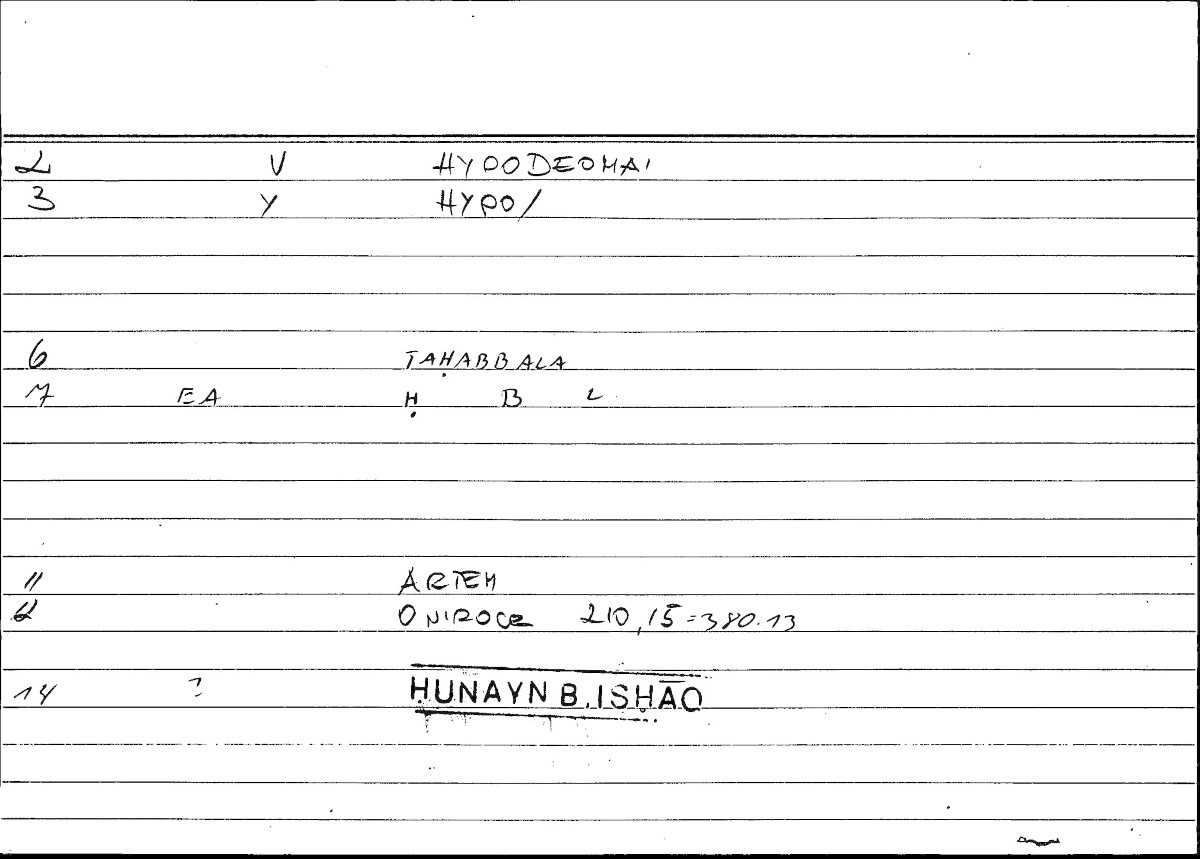 2 V HYPODEOMAI
3 Y HYPO/
6 TAḤABBALA
7 EA Ḥ B L
11 ARTEM
12 ONIROCR 210,15=380.13
14 ? ḤUNAYN B. ISḤĀQ